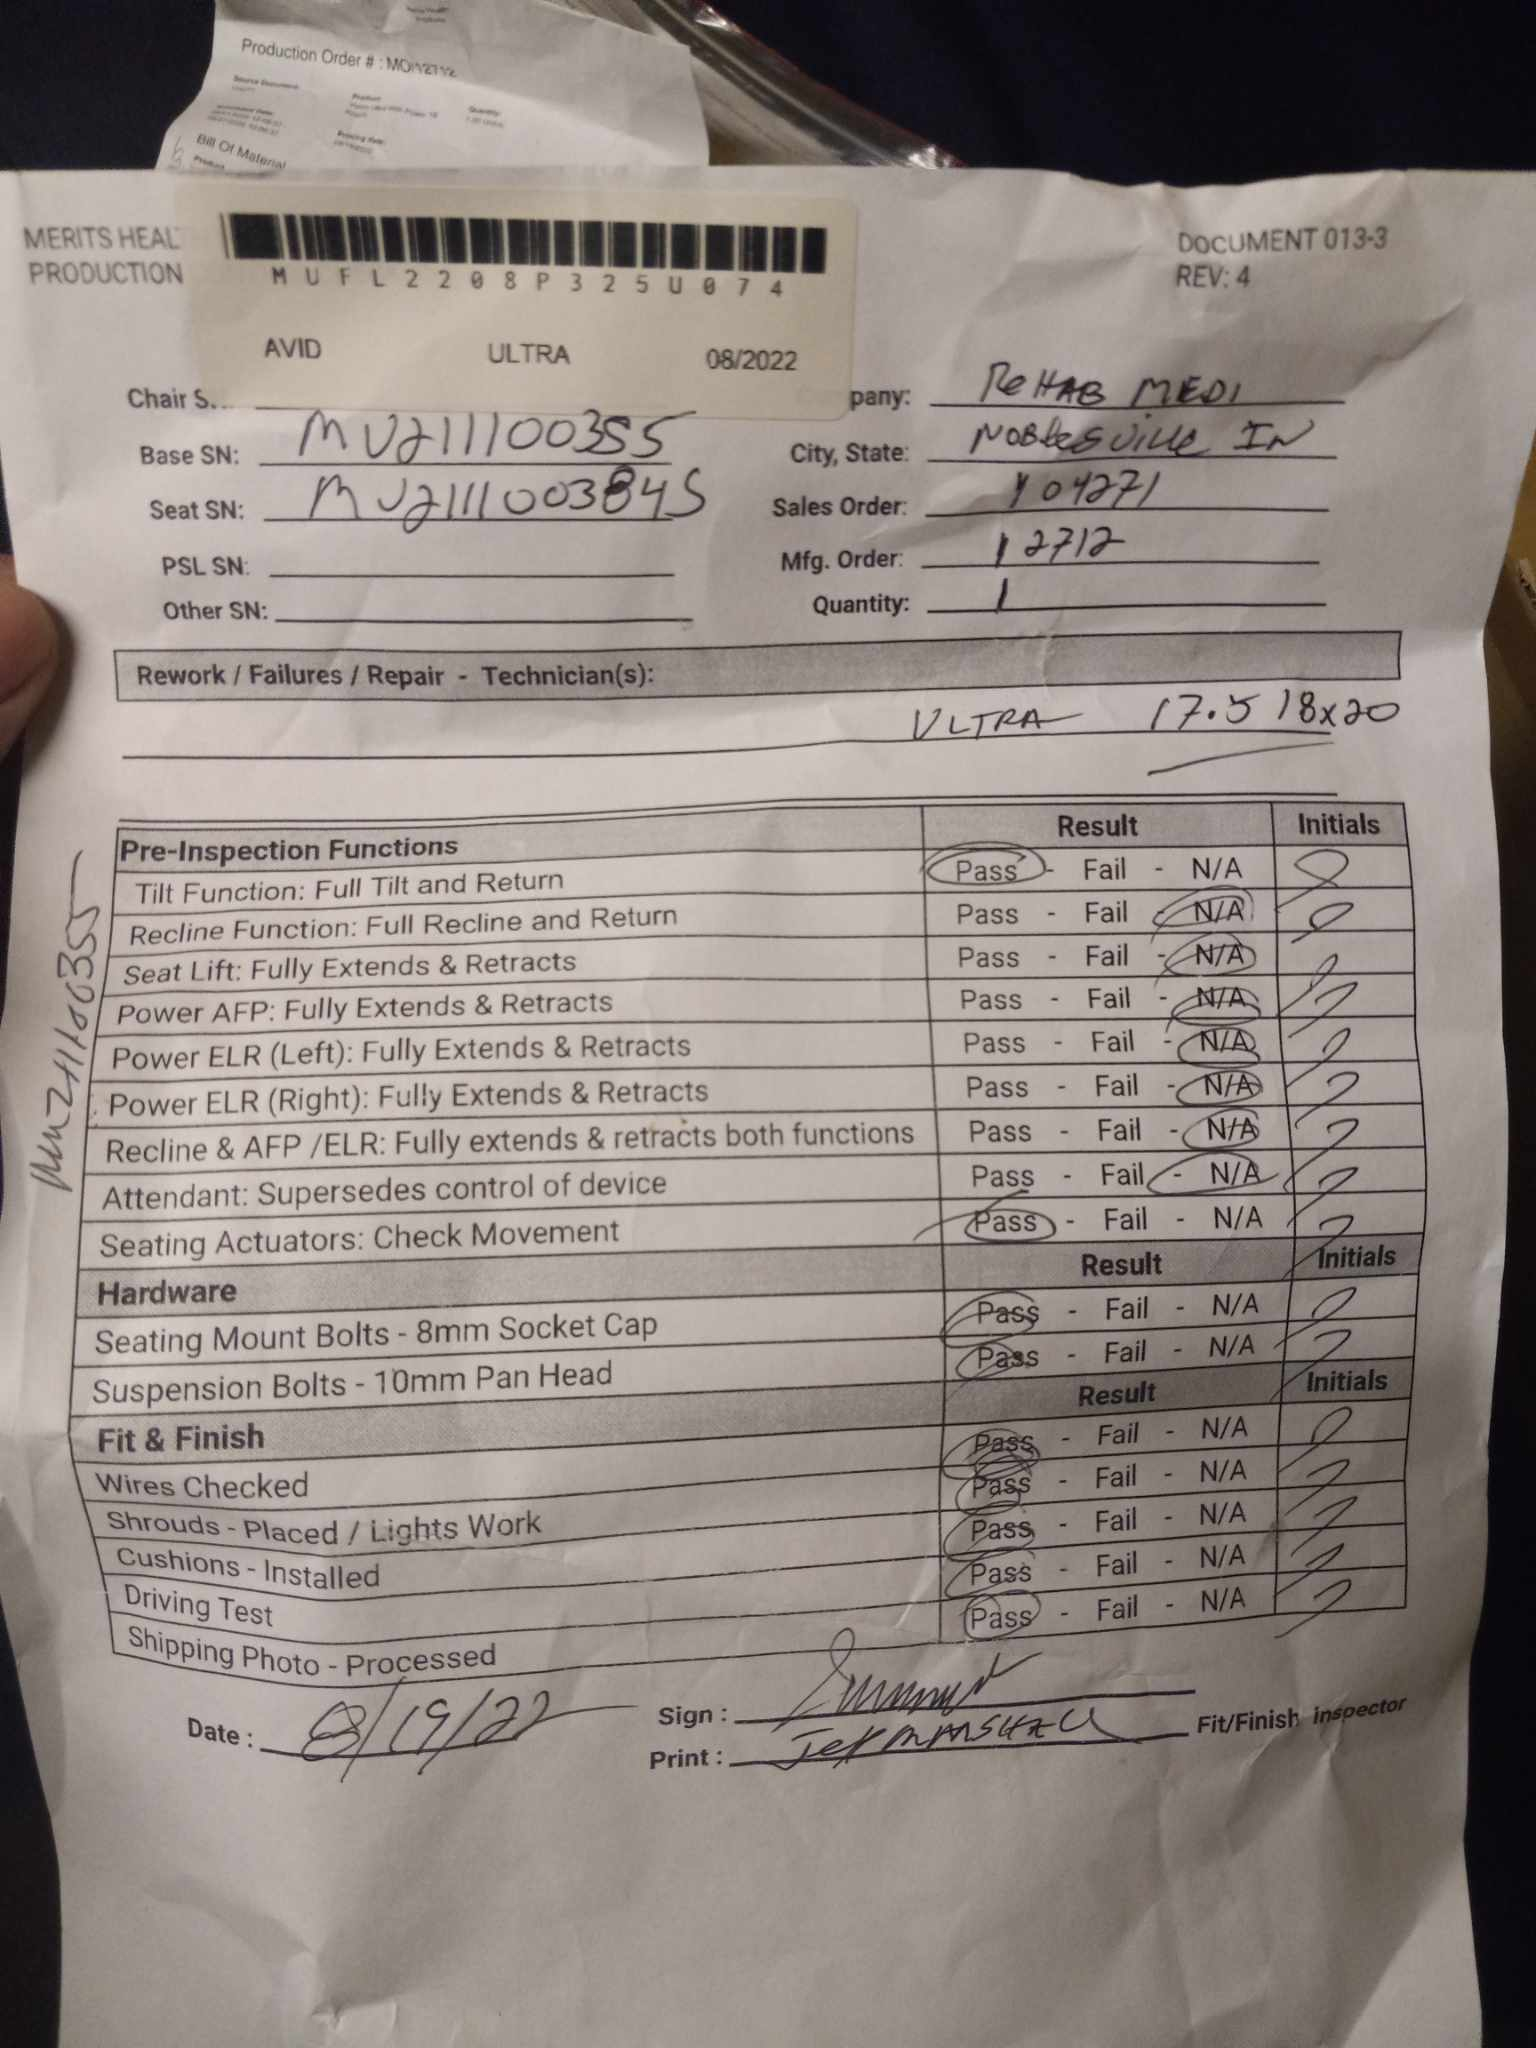 Production Order # : MO/12712
Source Document:
Product
Quantity:
Bill Of Material
Product
MERITS HEAL
PRODUCTION
MUFL2208P325U074
AVID ULTRA 08/2022
DOCUMENT 013-3
REV: 4
Chair S
pany: REHAB MEDI
Base SN: MU211100355
City, State: NOBLESVILLE IN
Seat SN: MU211100384S
Sales Order: 104271
PSL SN:
Mfg. Order: 12712
Other SN:
Quantity: 1
Rework / Failures / Repair - Technician(s):
ULTRA 17.5 18x20
Pre-Inspection Functions Result Initials
Tilt Function: Full Tilt and Return Pass - Fail - N/A
Recline Function: Full Recline and Return Pass - Fail - N/A
Seat Lift: Fully Extends & Retracts Pass - Fail - N/A
Power AFP: Fully Extends & Retracts Pass - Fail - N/A
Power ELR (Left): Fully Extends & Retracts Pass - Fail - N/A
Power ELR (Right): Fully Extends & Retracts Pass - Fail - N/A
Recline & AFP /ELR: Fully extends & retracts both functions Pass - Fail - N/A
Attendant: Supersedes control of device Pass - Fail - N/A
Seating Actuators: Check Movement Pass - Fail - N/A
Hardware Result Initials
Seating Mount Bolts - 8mm Socket Cap Pass - Fail - N/A
Suspension Bolts - 10mm Pan Head Pass - Fail - N/A
Fit & Finish Result Initials
Wires Checked Pass - Fail - N/A
Shrouds - Placed / Lights Work Pass - Fail - N/A
Cushions - Installed Pass - Fail - N/A
Driving Test Pass - Fail - N/A
Shipping Photo - Processed Pass - Fail - N/A
Date : 8/19/22
Sign :
Print :
Fit/Finish inspector